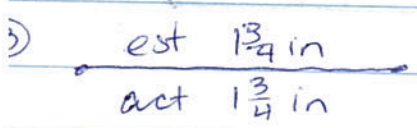 3) est 1 3/4 in
act 1 3/4 in